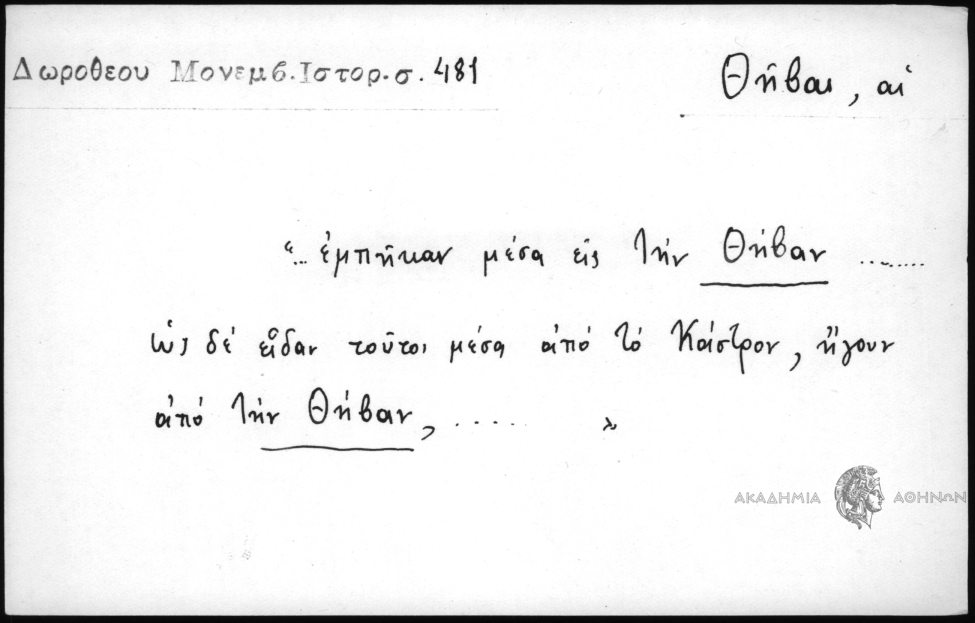 Δωροθεου Μονεμβ.Ιστορ.σ. 481
Θῆβαι, αἱ
"... ἐμπῆκαν μέσα εἰς τὴν Θήβαν .........
ὡς δέ εἶδαν τοῦτοι μέσα ἀπό τό Κάστρον, ἤγουν
ἀπό τήν Θήβαν, ...... »
ΑΚΑΔΗΜΙΑ ΑΘΗΝΩΝ